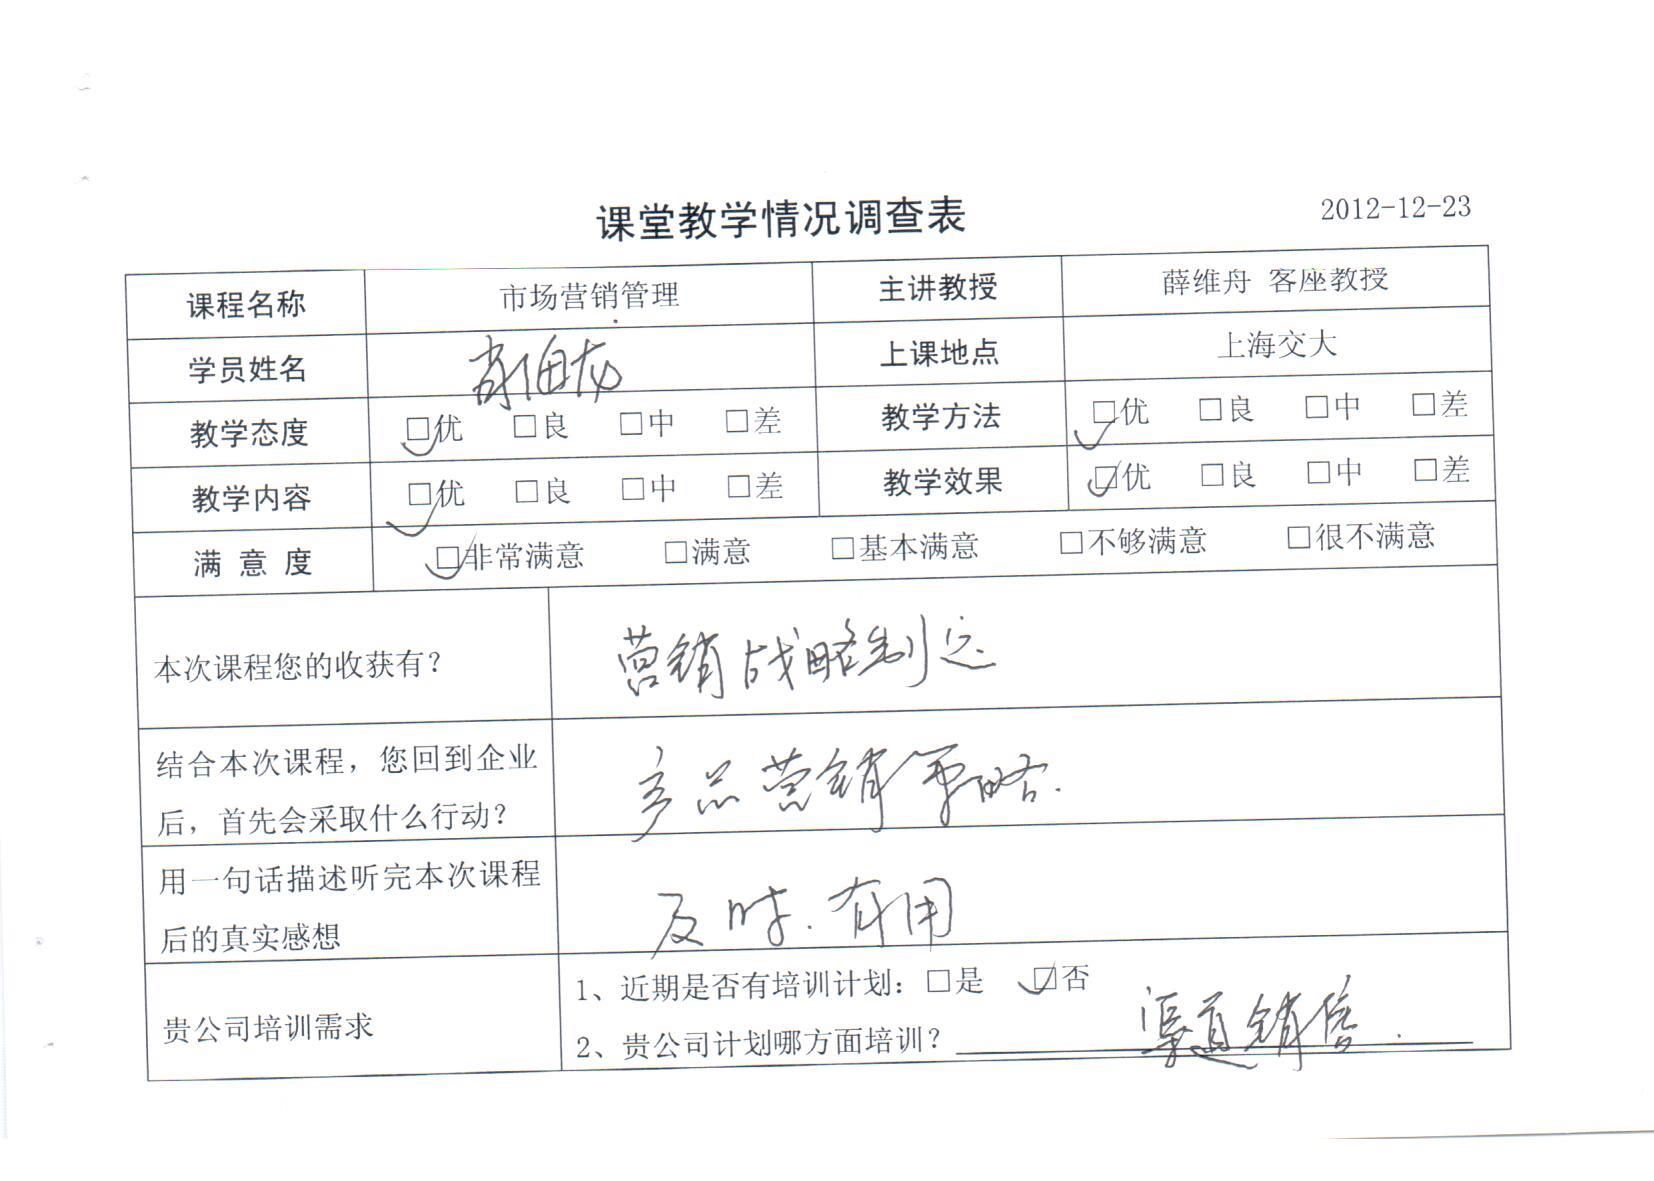 课堂教学情况调查表 2012-12-23
课程名称 市场营销管理 主讲教授 薛维舟 客座教授
学员姓名 肖伯龙 上课地点 上海交大
教学态度 □优 □良 □中 □差 教学方法 □优 □良 □中 □差
教学内容 □优 □良 □中 □差 教学效果 □优 □良 □中 □差
满 意 度 □非常满意 □满意 □基本满意 □不够满意 □很不满意
本次课程您的收获有？ 营销战略制定
结合本次课程，您回到企业
后，首先会采取什么行动？ 产品营销策略.
用一句话描述听完本次课程
后的真实感想 及时.有用
贵公司培训需求
1、近期是否有培训计划：□是 □否
2、贵公司计划哪方面培训？ 渠道销售.